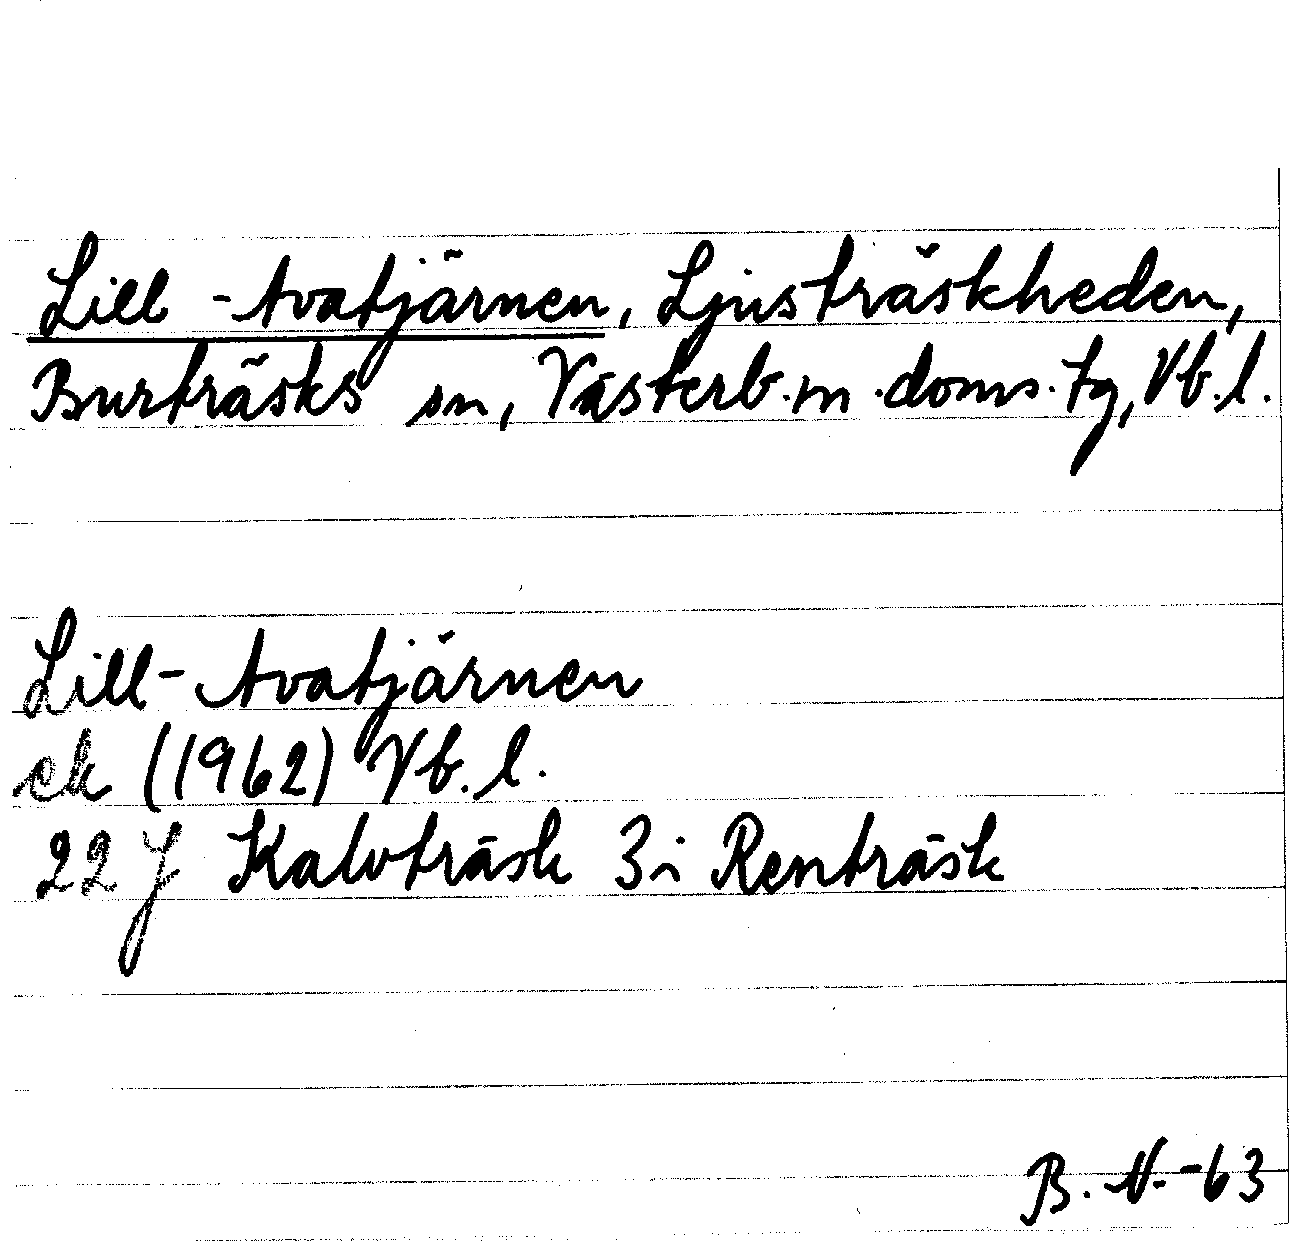 Lill-Avatjärnen, Ljusträskheden,
Burträsks sn, Västerb.m. doms. tg, Vb.l.
Lill-Avatjärnen
ek (1962) Vb.l.
22 J Kalvträsk 3 i Renträsk
B. N. -63